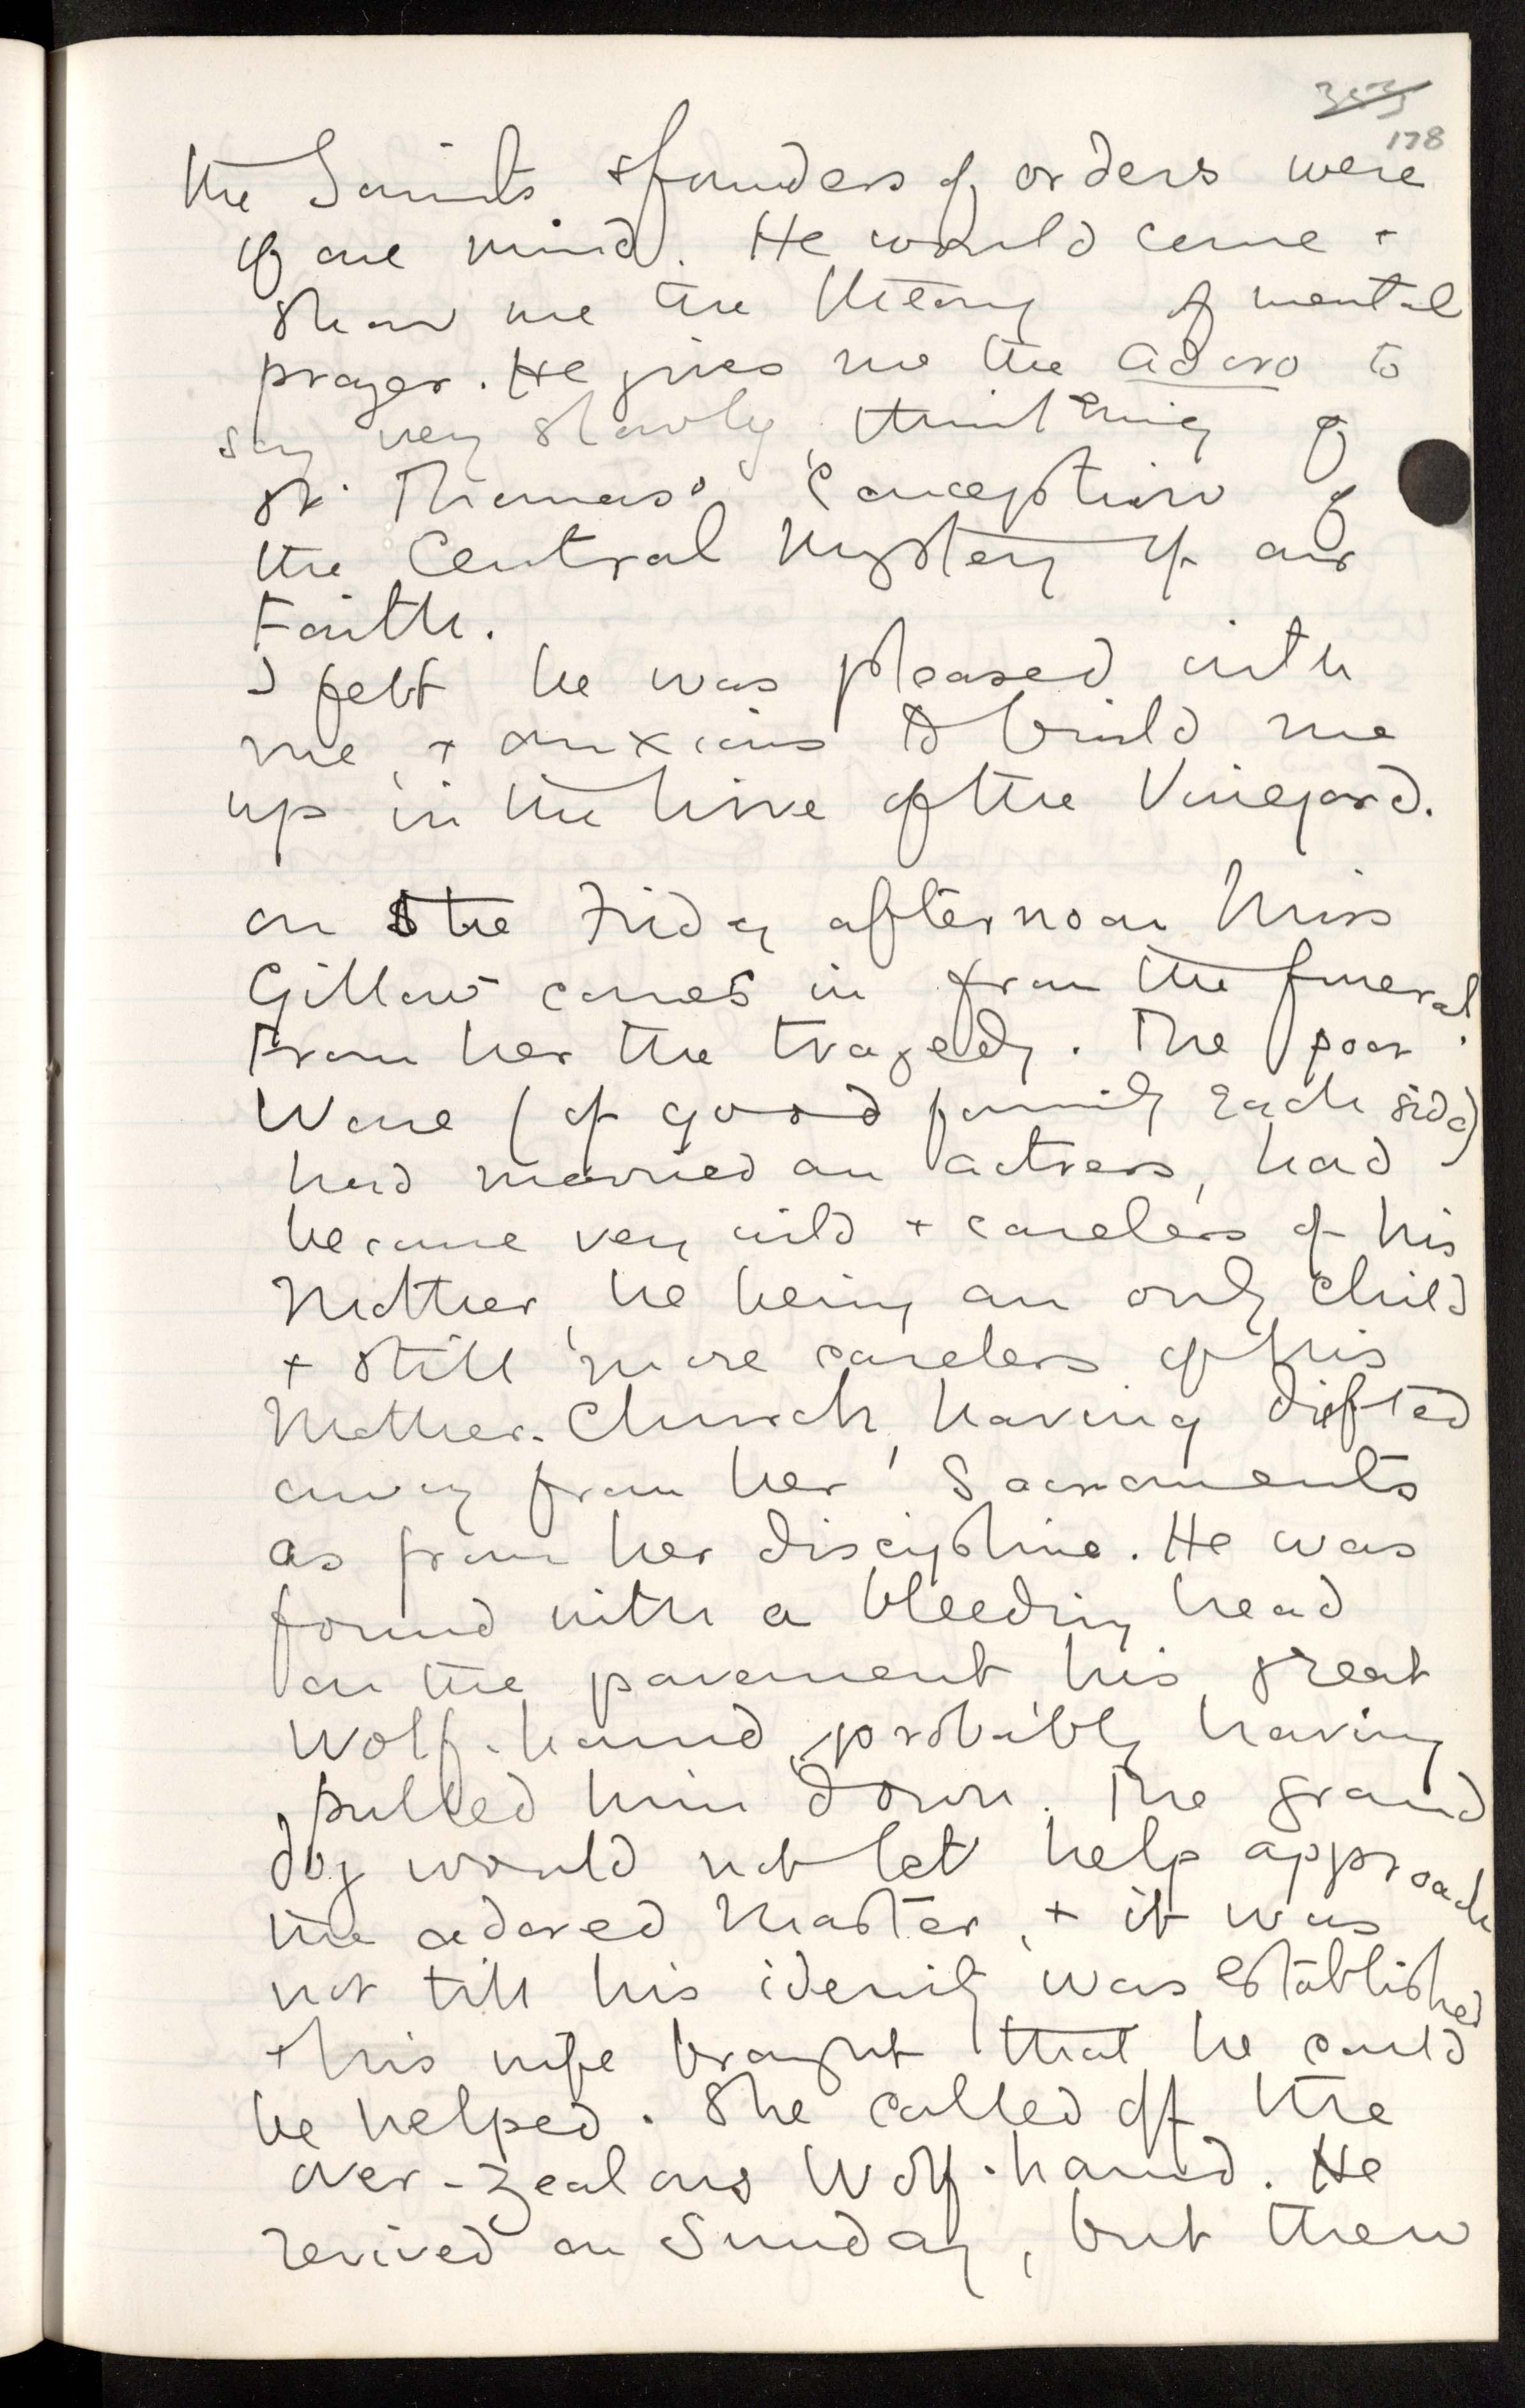 178
the Saints & founders of orders were
of one mind. He would come +
show me the theory of mental
prayer. He gives me the adoro to
say very slowly, thinking of
St. Thomas' Conception of
the Central Mystery of our
Faith.
I felt he was pleased with
me, + anxious to build me
up in the wine of the Vineyard.
on the Friday afternoon Miss
Gillow comes in from the funeral.
From her the tragedy. The poor
Ware (of good family each side)
had married an actress, had
become very wild + careless of his
Mother, he being an only child
+ still more careless of his
Mother-Church, having drifted
away from her Sacraments
as from her discipline. He was
found with a bleeding head
on the pavement his great
Wolf-hound, probably having
pulled him down. The grand
dog would not let help approach
the adored Master, + it was
not till his idenity was established
+ his wife brought that he could
be helped. She called off the
over-zealous Wolf-hound. He
revived on Sunday, but then